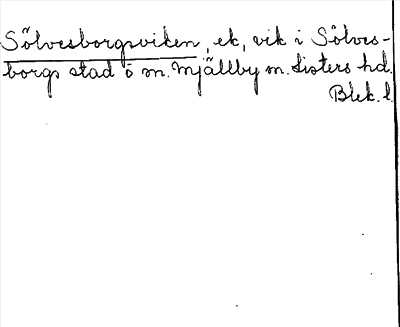 Sölvesborgsviken, ek, vik i Sölves-
borgs stad o m. Mjällby sn. Listers hd.
Blek. l.